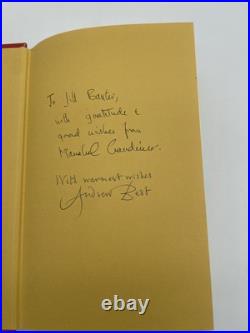 To Jill Baxter,
with gratitude &
good wishes from
Marshel
With warmest wishes
Andrew Best